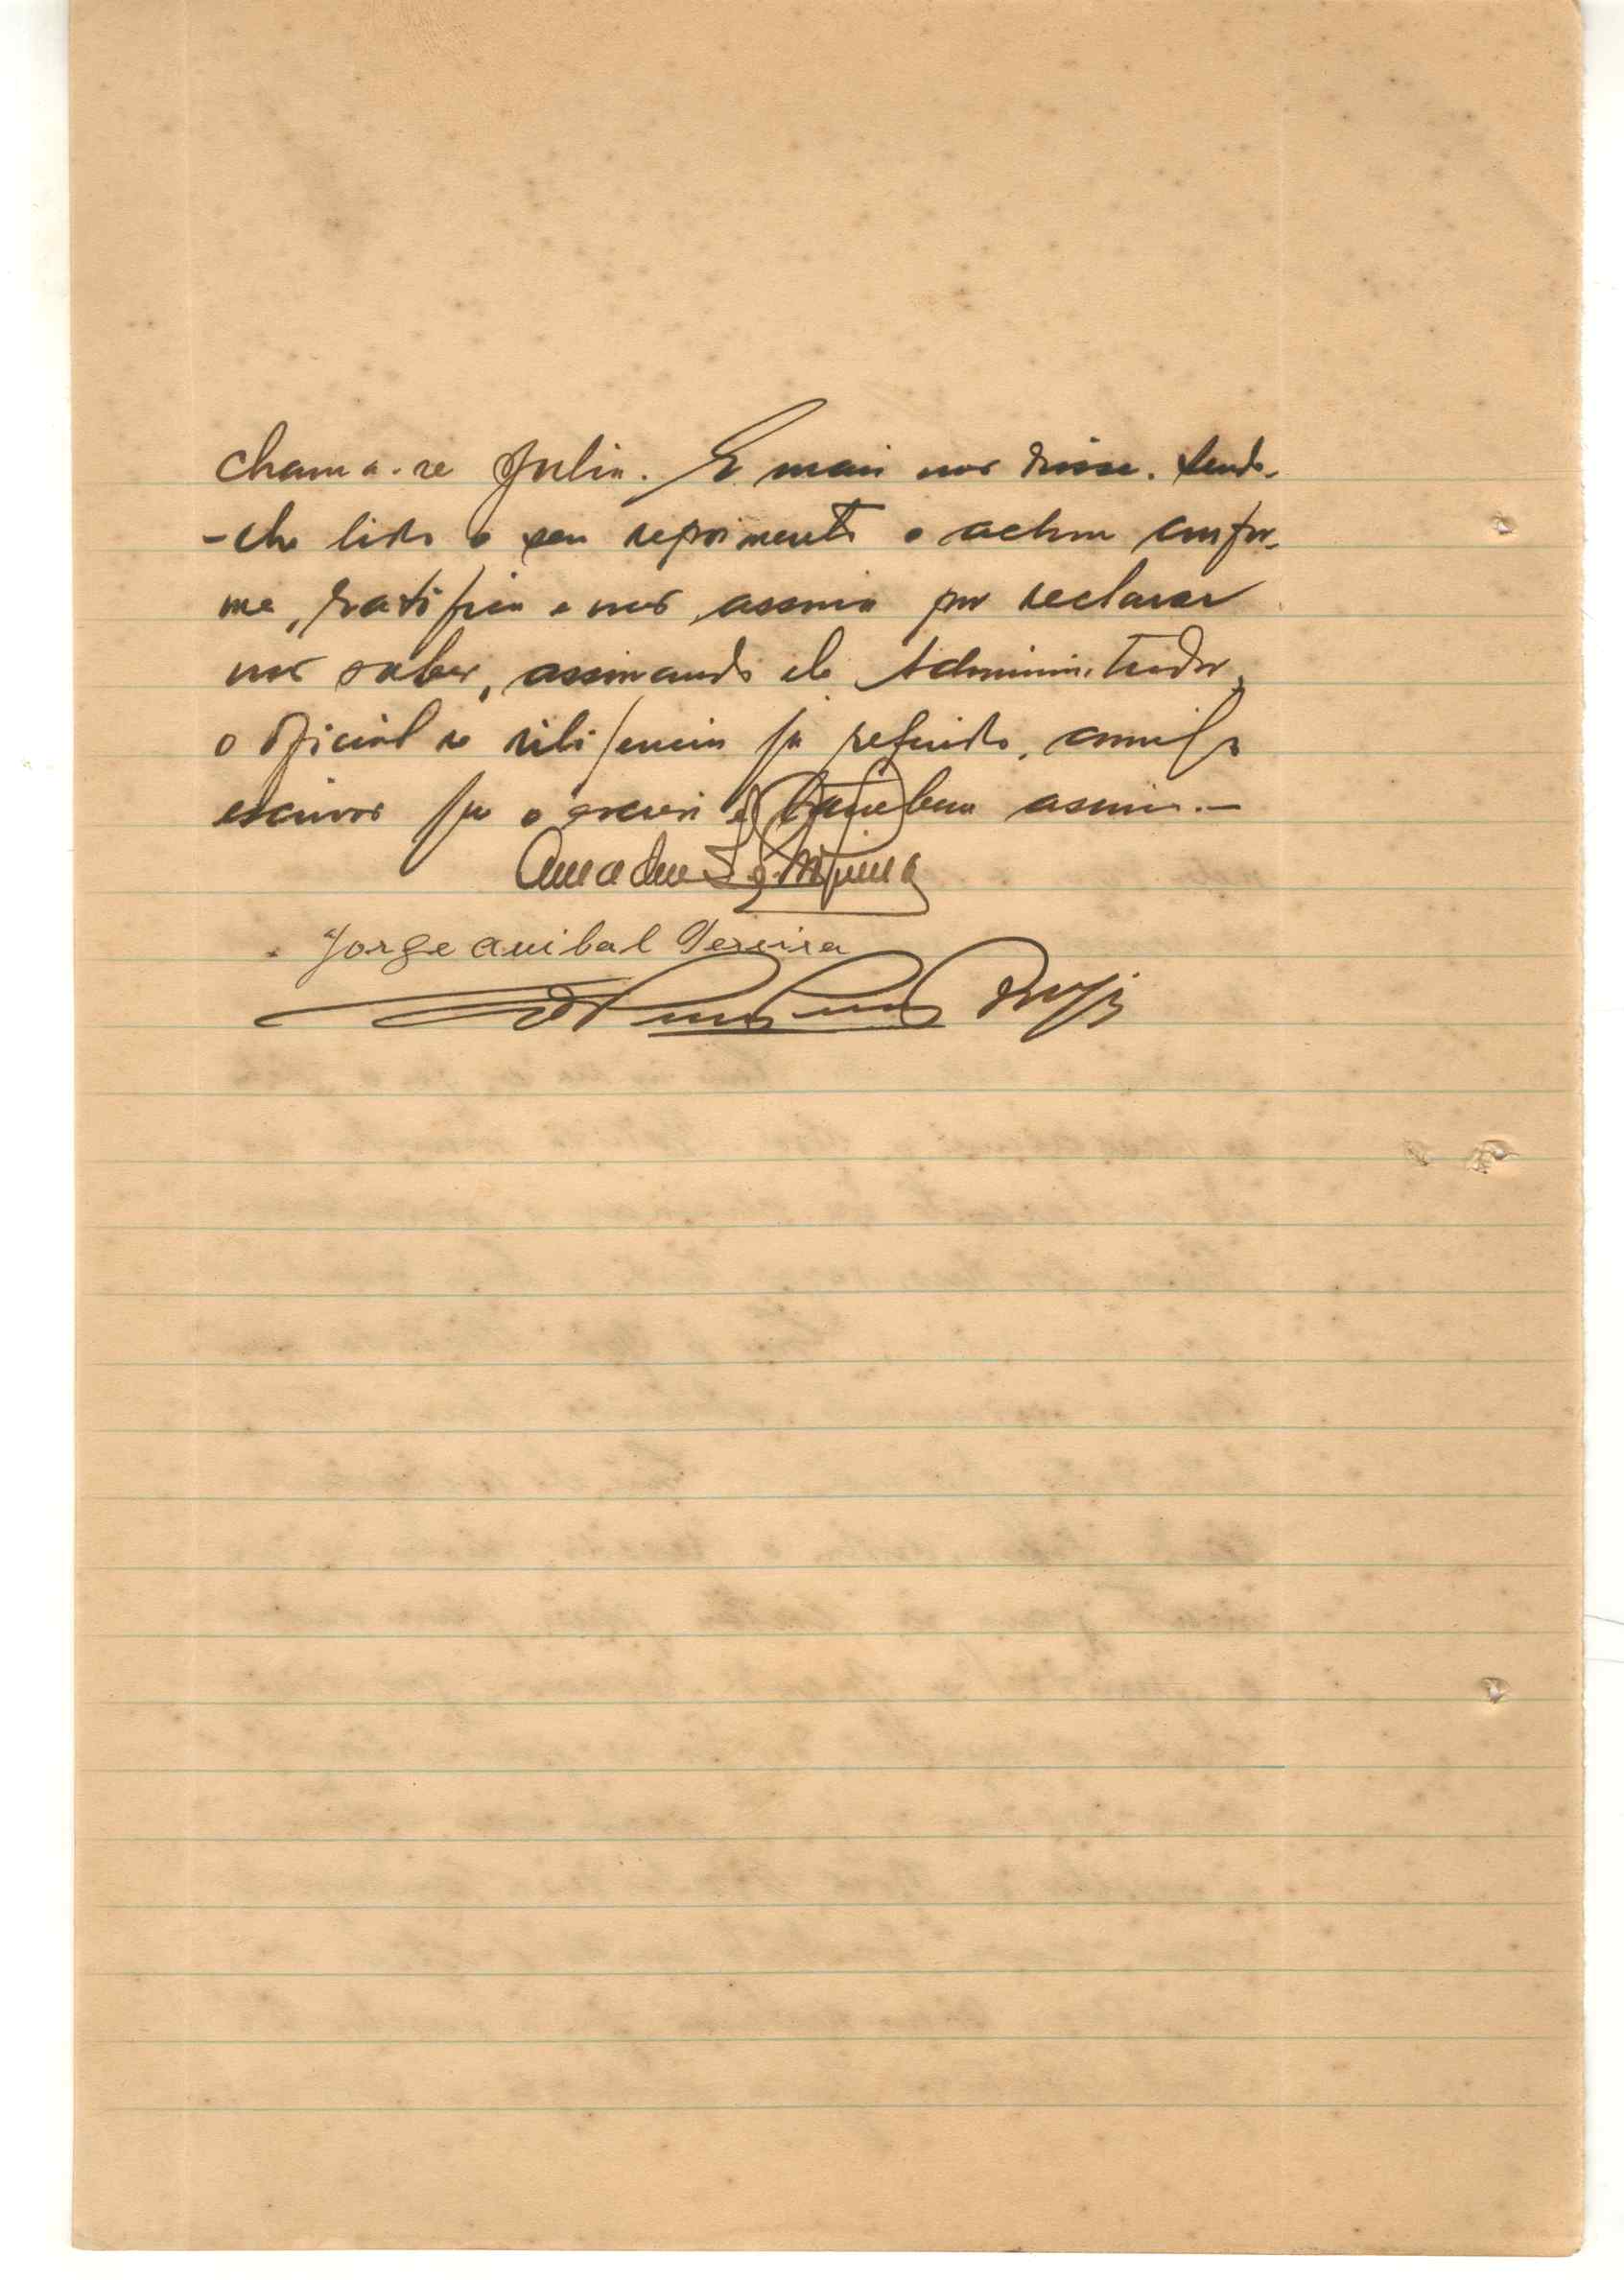 chama-se Julia. E mais não disse. Sendo-
-lhe lido o seu depoimento o achou confor-
me, ratifica e não assina por declarar
não saber, assinando ele Administrador,
o oficial de diligencia já referido, comigo
escrivão que o escrevi e tambem assino.—
Amadeu
Jorge Anibal Pereira